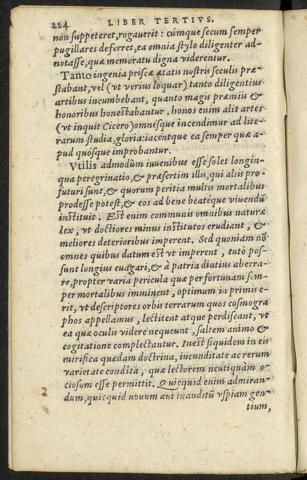 224 LIBER TERTIVS.
non suppeteret, rogauerit: cúmque secum semper
pugillares deferret, ea omnia stylo diligenter ad-
notasse, quæ memoratu digna viderentur.
Tanto ingenia priscæ ætatis nostris seculis præ-
stabant, vel (vt verius loquar) tanto diligentius
artibus incumbebant, quanto magis præmiis &
honoribus honestabantur. honos enim alit artes
(vt inquit Cicero) omnésque incendimur ad lite-
rarum studia, gloria: iacéntque ea semper quæ a-
pud quosque improbantur.
Vtilis admodùm iuuenibus esse solet longin-
qua peregrinatio, & præsertim illis, qui aliis pro-
futuri sunt, & quorum peritia multis mortalibus
prodesse potest, & eos ad bene beatéque viuendũ
instituit. Est enim communis omnibus naturæ
lex, vt doctiores minus institutos erudiant, &
meliores deterioribus imperent. Sed quoniam nõ
omnes quibus datum est vt imperent, tutò pos-
sunt longius euagari, & à patria diutius aberra-
re, propter varia pericula quæ per fortunam sem-
per mortalibus imminent, optimum in primis e-
rit, vt descriptores orbis terrarum quos cosmogra
phos appellamus, lectitent atque perdiscant, vt
ea quæ oculis videre nequeunt, saltem animo &
cogitatione complectantur. Inest siquidem in eis
mirifica quædam doctrina, iucunditate ac rerum
varietate condita, quæ lectorem neutiquàm o-
ciosum esse permittit. Quicquid enim admiran-
dum, quicquid nouum aut inauditũ vspiam gen-
tium,